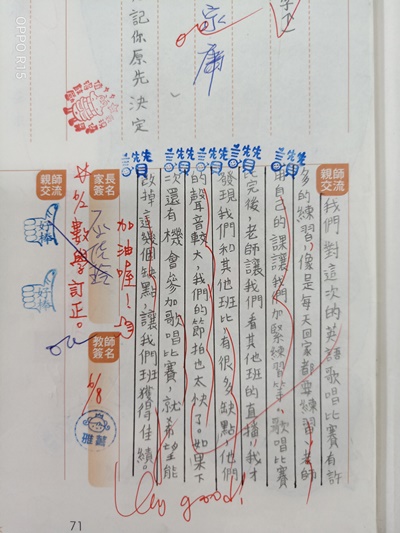 記你原先決定
家庸
親師交流
我們對這次的英語歌唱比賽有許
多的練習,像是每天回家都要練習、老師
用自己的課讓我們加緊練習等。歌唱比賽
完後,老師讓我們看其他班的直播,我才
發現我們和其他班比有很多缺點,他們
的聲音較大,我們的節拍也太快了。如果下
次還有機會參加歌唱比賽,就希望能
改掉這幾個缺點,讓我們班獲得佳績。
讚
讚
讚
讚
讚
讚
加油喔!
家長簽名
教師簽名
6/8
親師交流
數學訂正。
Very good!
71
OPPO R15